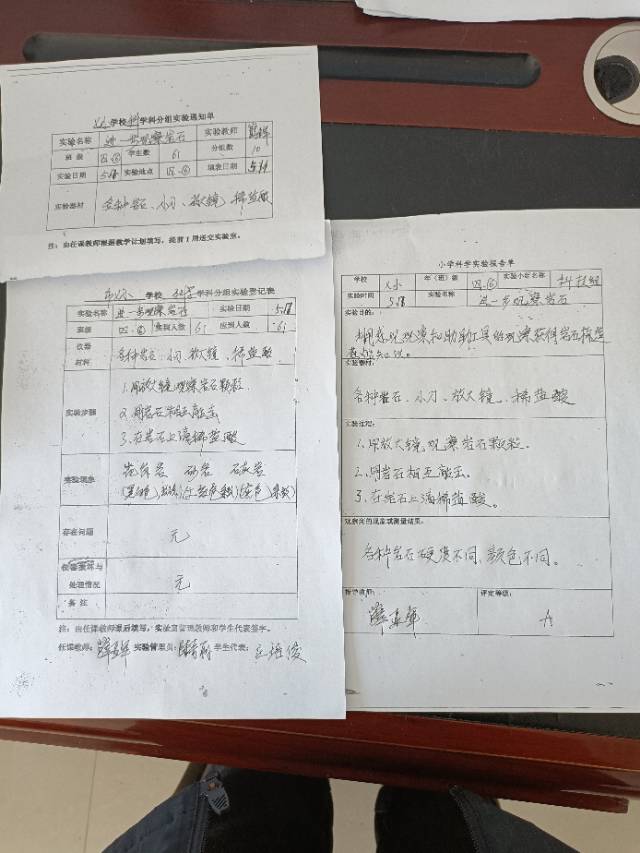 学校科学科分组实验通知单
实验名称 进一步观察岩石 实验教师
班级 四.⑥ 学生数 61 分组数 10
实验日期 5.18 实验地点 四.⑥ 填表日期
实验器材 各种岩石、小刀、放大镜、稀盐酸
注：由任课教师根据教学计划填写，提前1周送交实验室。
学校 科学学科分组实验登记表
实验名称 进一步观察岩石 实验日期 5.18
班级 四.⑥ 实到人数 61 应到人数 61
仪器
材料 各种岩石、小刀、放大镜、稀盐酸
实验步骤 1.用放大镜观察岩石颗粒
2.用岩石相互敲击
3.在岩石上滴稀盐酸
实验现象 花岗岩 砾岩
存在问题 无
仪器损坏与
处理情况 无
备注
注：由任课教师课后填写，实验室管理教师和学生代表签字。
任课教师： 实验管理员： 学生代表：
小学科学实验报告单
学校 年（班）级 四.⑥ 实验小组名称 科技组
实验时间 5.18 实验名称 进一步观察岩石
实验目的：
实验器材：
各种岩石、小刀、放大镜、稀盐酸
实验过程：
1.用放大镜观察岩石颗粒。
2.用岩石相互敲击。
3.在岩石上滴稀盐酸。
观察到的现象或测量结果：
各种岩石硬度不同、颜色不同。
评定等级：
A